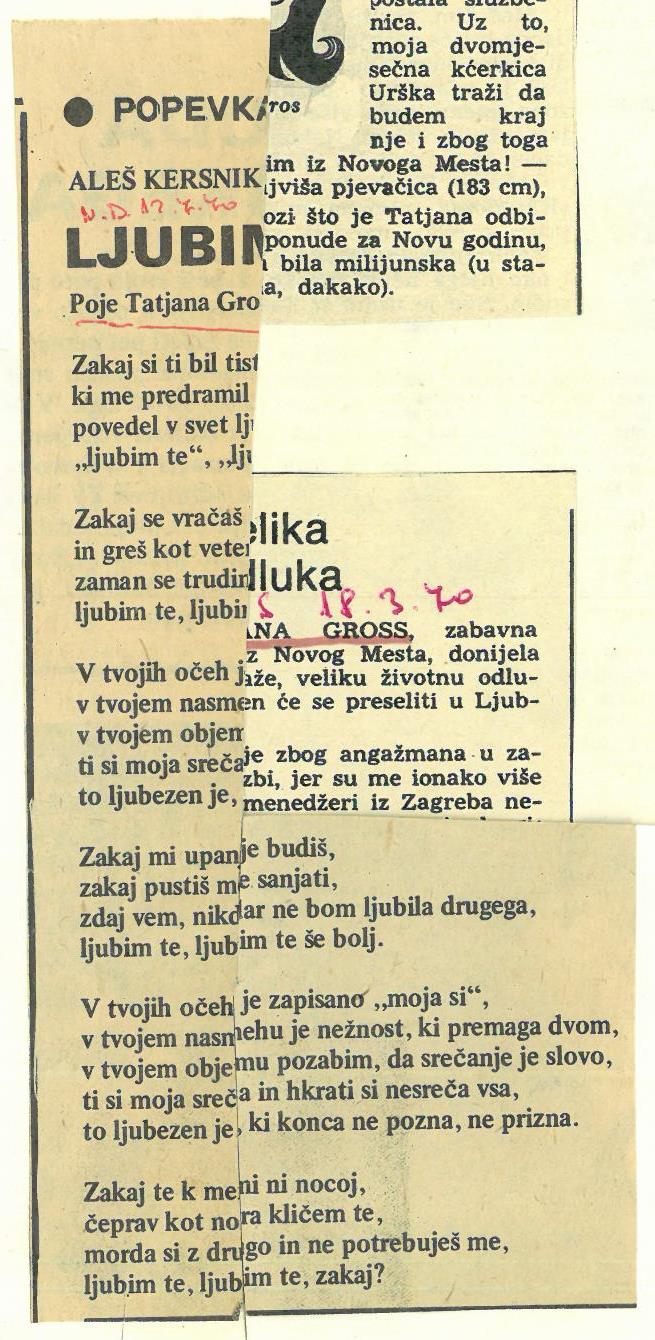 ● POPEVKA
ALEŠ KERSNIK
N.D. 12.7.70
LJUBIM
Poje Tatjana Gro
Zakaj si ti bil tist
ki me predramil
povedel v svet lju
„ljubim te“, „lju
Zakaj se vračaš
in greš kot veter
zaman se trudim
ljubim te, ljubim
V tvojih očeh j
v tvojem nasme
v tvojem objem
ti si moja sreča
to ljubezen je,
Zakaj mi upanje budiš,
zakaj pustiš me sanjati,
zdaj vem, nikdar ne bom ljubila drugega,
ljubim te, ljubim te še bolj.
V tvojih očeh je zapisano „moja si“,
v tvojem nasmehu je nežnost, ki premaga dvom,
v tvojem objemu pozabim, da srečanje je slovo,
ti si moja sreča in hkrati si nesreča vsa,
to ljubezen je, ki konca ne pozna, ne prizna.
Zakaj te k meni ni nocoj,
čeprav kot nora kličem te,
morda si z drugo in ne potrebuješ me,
ljubim te, ljubim te, zakaj?
postala službe-
nica. Uz to,
moja dvomje-
sečna kćerkica
Urška traži da
budem kraj
nje i zbog toga
ros
im iz Novoga Mesta! —
jviša pjevačica (183 cm),
ozi što je Tatjana odbi-
ponude za Novu godinu,
bila milijunska (u sta-
a, dakako).
elika
dluka
S 18.3.70
ANA GROSS, zabavna
z Novog Mesta, donijela
aže, veliku životnu odlu-
n će se preseliti u Ljub-
je zbog angažmana u za-
zbi, jer su me ionako više
menedžeri iz Zagreba ne-